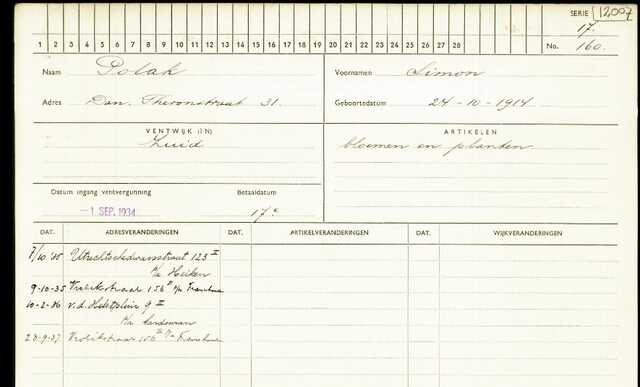 SERIE 12007
17.
1 2 3 4 5 6 7 8 9 10 11 12 13 14 15 16 17 18 19 20 21 22 23 24 25 26 27 28 No. 160.
Naam Polak Voornamen Simon
Adres Dan. Theronstraat 31. Geboortedatum 24-10-1914
VENTWIJK (EN) ARTIKELEN
Zuid bloemen en planten
Datum ingang ventvergunning Betaaldatum
-1 SEP. 1934 17e
DAT. ADRESVERANDERINGEN DAT. ARTIKELVERANDERINGEN DAT. WIJKVERANDERINGEN
7/10 '35 Utrechtschedwarsstraat 123 II
p/a Heiken
9-10-35 Vrolikstraat 156 II p/a
10-2-36 v.d. 9 II
p/a
28-9-37 Vrolikstraat 156 II p/a